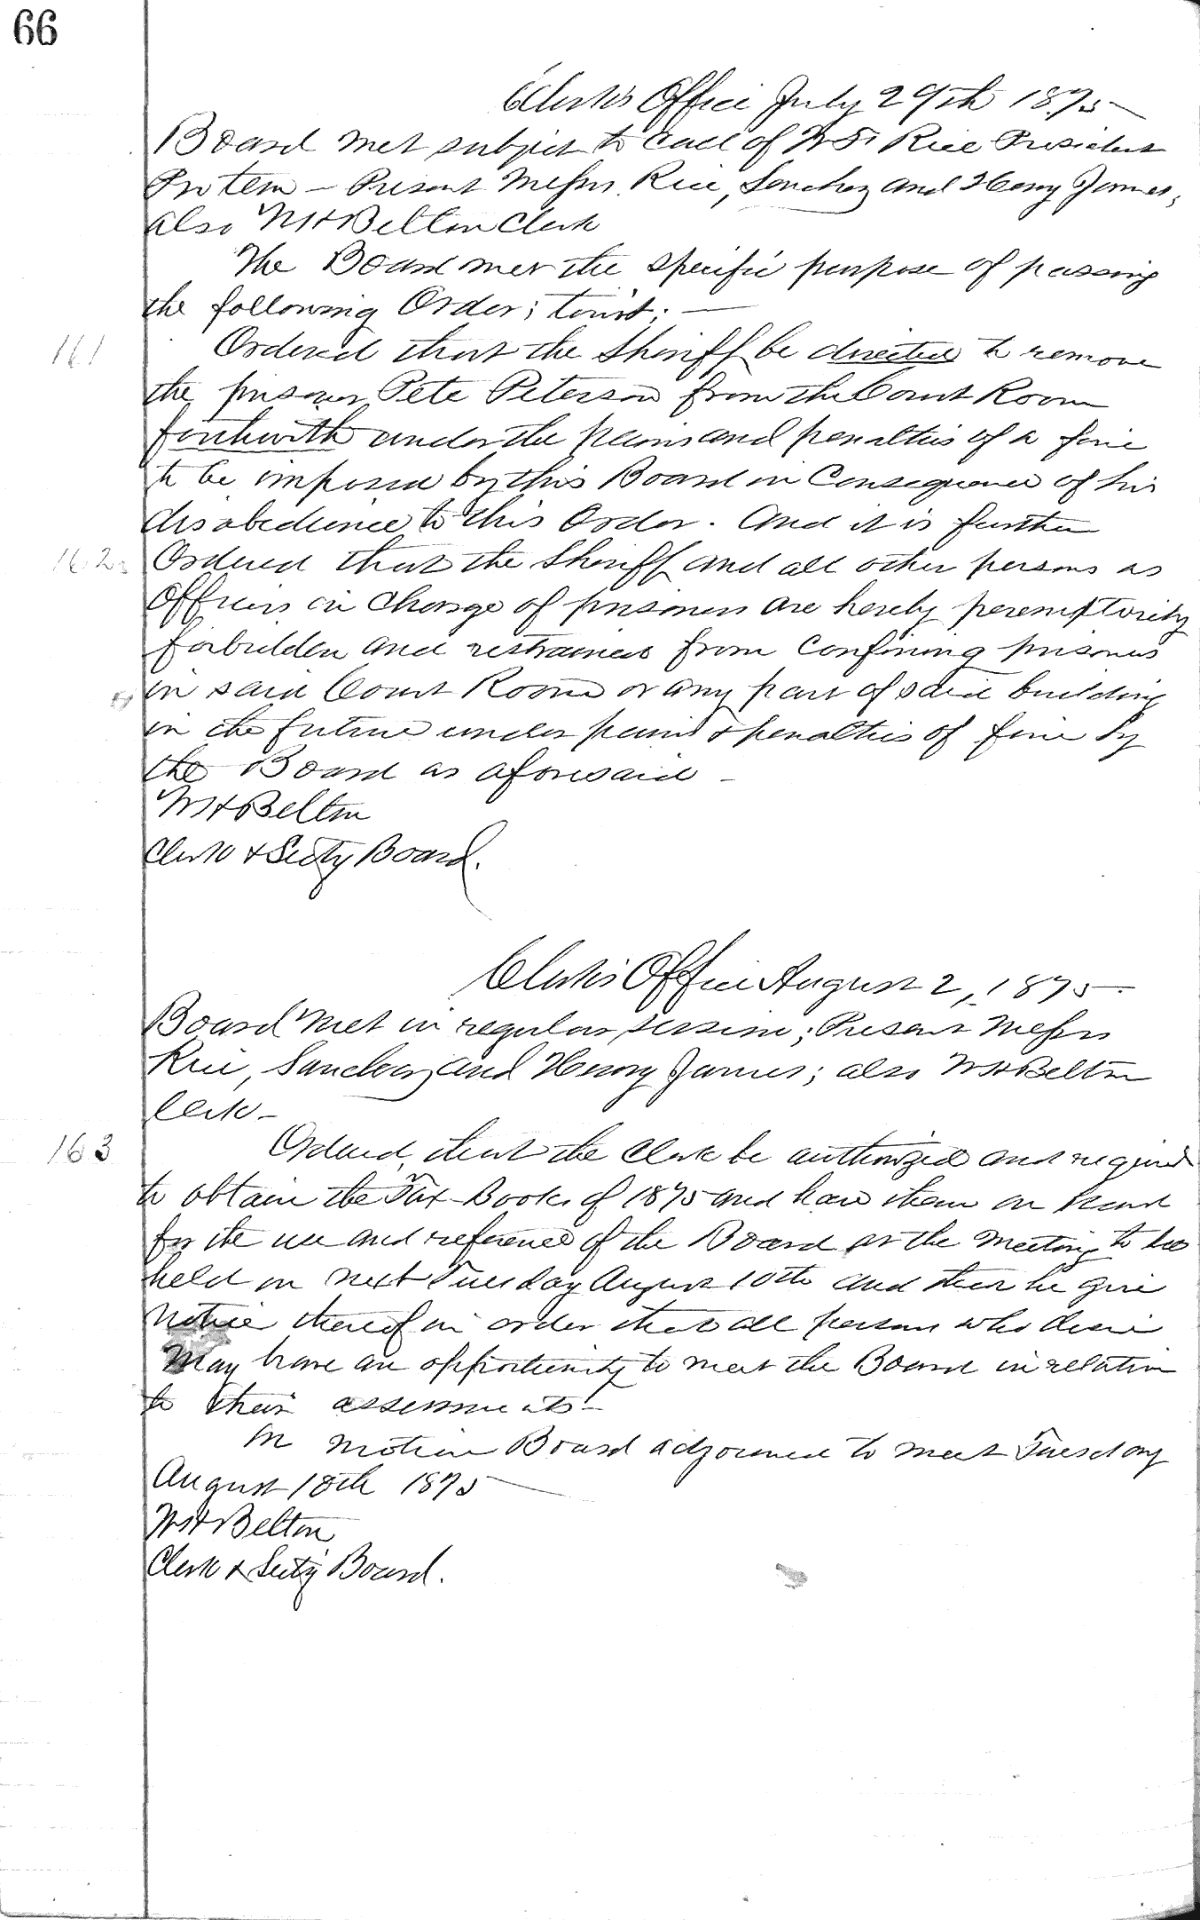 66
Clerk's Office July 29th 1875
Board met subject to call of Rice President
Pro tem — Present Messrs. Rice, Sanchez and Henry James,
also WH Belton Clerk
The Board met the specific purpose of passing
the following Order; towit; —
161 Ordered that the Sheriff be directed to remove
the prisoner Pete Peterson from the Court Room
forthwith under the pains and penalties of a fine
to be imposed by this Board in Consequence of his
disobedience to this Order. And it is further
162 Ordered that the Sheriff and all other persons as
Officers in charge of prisoners are hereby peremptorily
forbidden and restrained from confining prisoners
in said Court Room or any part of said building
in the future under pains & penalties of fine by
the Board as aforesaid —
WH Belton
Clerk & Secty Board.
Clerk's Office August 2, 1875 —
Board met in regular session; Present Messrs
Rice, Sanchez and Henry James; also WH Belton
Clerk —
163 Ordered, that the Clerk be authorized and required
to obtain the Tax-Books of 1875 and have them on hand
for the use and reference of the Board at the Meeting to be
held on next Tuesday August 10th and that he give
notice thereof in order that all persons who desire
May have an opportunity to meet the Board in relation
to their assessments —
On motion Board adjourned to meet Tuesday
August 10th 1875 —
WH Belton
Clerk & Secty Board.